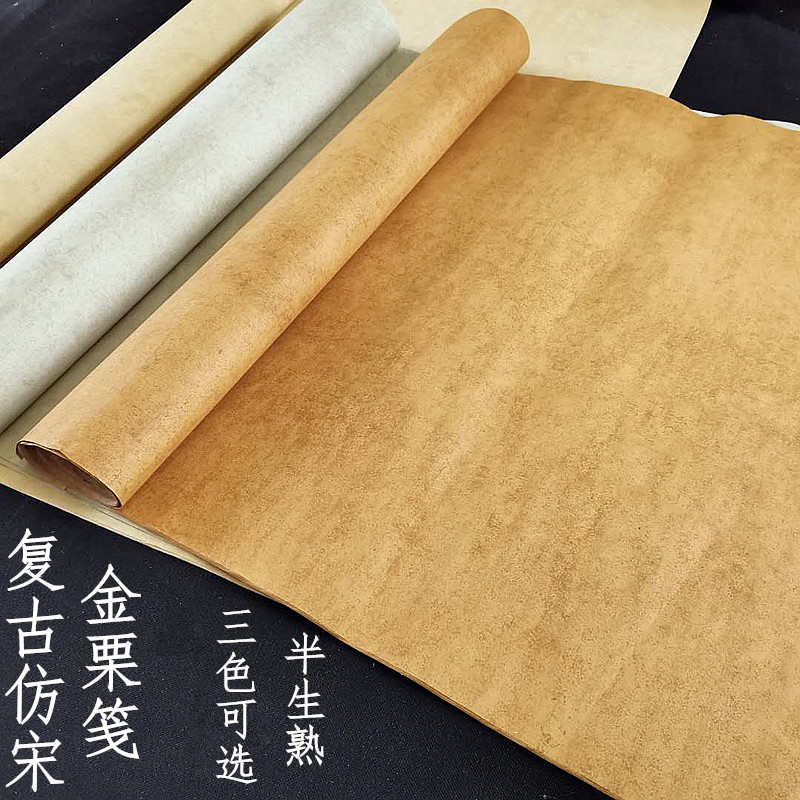 复古仿宋
金栗笺
三色可选
半生熟